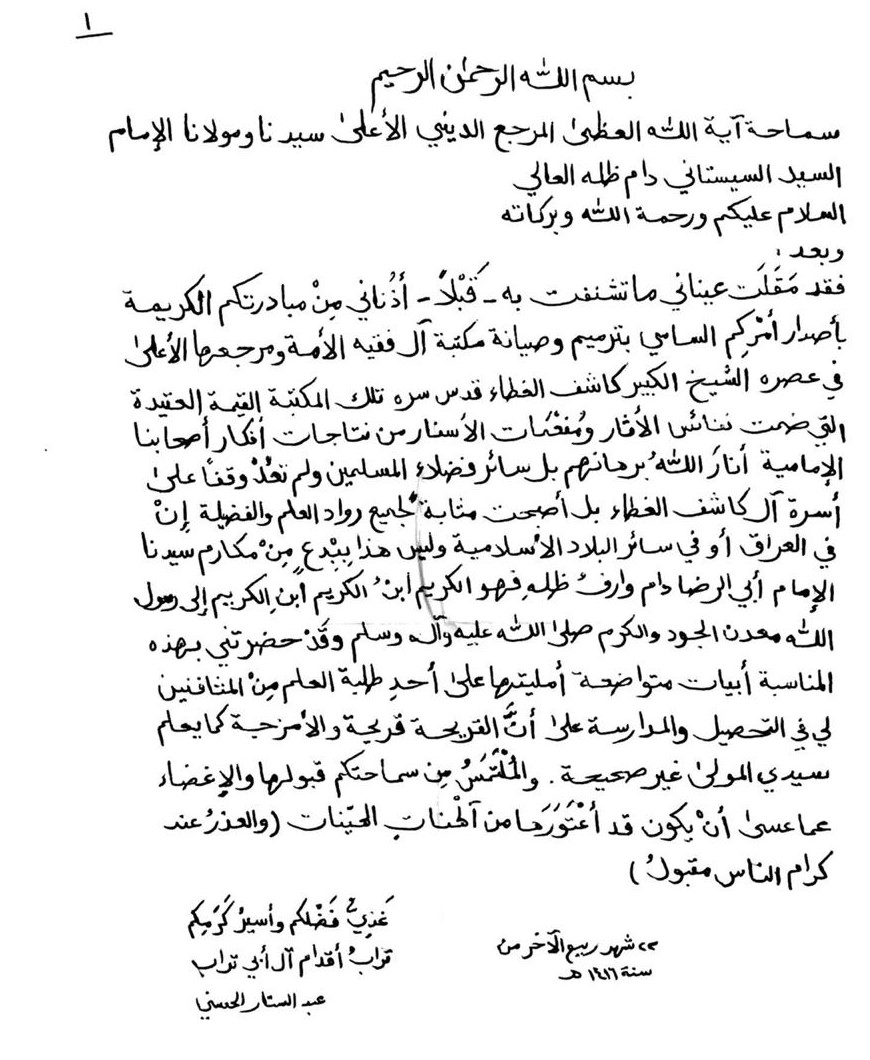 ١
بسم الله الرحمٰن الرحيم
سماحة آية الله العظمىٰ المرجع الديني الأعلىٰ سيدنا ومولانا الإمام
السيد السيستاني دام ظله العالي
السلام عليكم ورحمة الله وبركاته
وبعد :
فقد مَقَلَت عيناني ما تشنفت به - قَبْلاً - أُذُناني مِنْ مبادرتكم الكريمة
بأصدار أمْرِكم السامي بترميم وصيانة مكتبة آل فقيه الأمة ومرجعها الأعلىٰ
في عصره الشيخ الكبير كاشف الغطاء قدس سره تلك المكتبة القيمة العتيدة
التي ضمت نفائس الأثار ومُفْعَمات الأسفار من نتاجات أفكار أصحابنا
الإمامية أنارَ اللهُ برهانهم بل سائر فضلاء المسلمين ولم تعُدْ وقفاً علىٰ
أسرة آل كاشف الغطاء بل أصبحت مثابةً لجميع رواد العلم والفضيلة إنْ
في العراق أو في سائر البلاد الأسلامية وليس هذا بِبْدعٍ مِنْ مكارم سيدنا
الإمام أبي الرضا دام وارفُ ظله فهو الكريم ابنُ الكريم أبنِ الكريم إلى رسول
الله معدن الجود والكرم صلىٰ الله عليه وآله وسلم وقَدْ حضرتني بهذه
المناسبة أبيات متواضعة أمليتها علىٰ أحدِ طلبة العلم مِنْ المثافنين
لي في التحصيل والمدارسة علىٰ أنَّ القريحة قريحة والأمزجة كما يعلم
سيدي المولىٰ غير صحيحة . والمُلْتَمَسُ مِن سماحتكم قبولها والإغضاء
عما عسىٰ أنْ يكون قد أعْتَوَرَها من آلهْناتِ الهيّنات (والعذرُ عند
كرام الناس مقبولُ)
غَذِيُّ فَضْلكم وأسيرُ كَرَمِكم
ترابُ أقدام آل أبي تراب
عبد الستار الحسني
٢٢ شهر ربيع الآخر من
سنة ١٤١٦ هـ